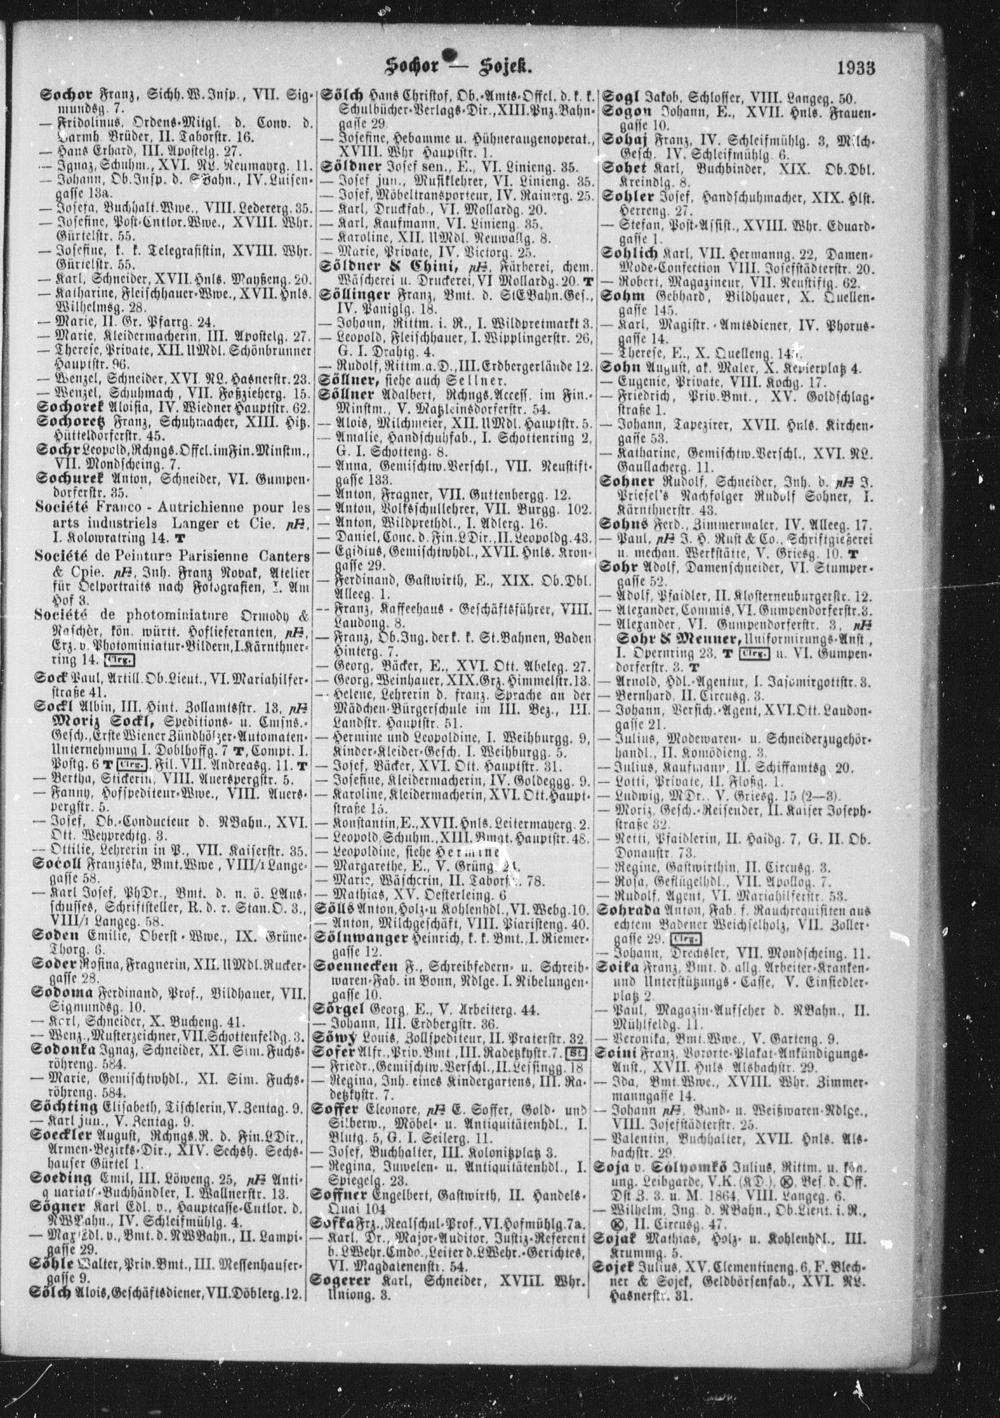 Sochor — Sojek.
1933
Sochor Franz, Sichh. W. Insp., VII. Sig-
mundsg. 7.
— Fridolinus, Ordens-Mitgl. d. Conv. d.
Barmh. Brüder, II. Taborstr. 16.
— Hans Erhard, III. Apostelg. 27.
— Ignaz, Schuhm., XVI. NL. Neumayrg. 11.
— Johann, Ob. Insp. d. SBahn., IV. Luisen-
gasse 13a.
— Josefa, Buchhalt. Wwe., VIII. Lederergasse. 35.
— Josefine, Post-Cntlor. Wwe., XVIII. Whr.
Gürtelstr. 55.
— Josefine, k. k. Telegrafistin, XVIII. Whr.
Gürtelstr. 55.
— Karl, Schneider, XVII. Hnls. Mayßeng. 20.
— Katharine, Fleischhauer-Wwe., XVII. Hnls.
Wilhelmsg. 28.
— Marie, II. Gr. Pfarrg. 24.
— Marie, Kleidermacherin, III. Apostelg. 27.
— Therese, Private, XII. UMdl. Schönbrunner
Hauptstr. 96.
— Wenzel, Schneider, XVI. NL. Hasnerstr. 23.
— Wenzel, Schuhmach., VII. Foßzieherg. 15.
Sochorek Aloisia, IV. Wiedner Hauptstr. 62.
Sochoretz Franz, Schuhmacher, XIII. Hitz.
Hütteldorferstr. 45.
Sochr Leopold, Rchngs. Offcl. im Fin. Minstm.,
VII. Mondscheing. 7.
Sochurek Anton, Schneider, VI. Gumpen-
dorferstr. 35.
Société Franco-Autrichienne pour les
arts industriels Langer et Cie. pH,
I. Kolowratring 14. T
Société de Peinture Parisienne Canters
& Cpie. pH, Inh. Franz Novak, Atelier
für Oelportraits nach Fotografien, I. Am
Hof 3.
Société de photominiature Ormody &
Naschér, kön. württ. Hoflieferanten, pH,
Erz. v. Photominiatur-Bildern, I. Kärnthner-
ring 14. Clrg.
Sock Paul, Artill. Ob. Lieut., VI. Mariahilfer-
straße 41.
Sockl Albin, III. Hint. Zollamtsstr. 13, pH
Moriz Sockl, Speditions- u. Cmsns.-
Gesch., Erste Wiener Zündhölzer-Automaten-
Unternehmung I. Doblhoffg. 7 T, Compt. I.
Postg. 6 T Clrg. Fil. VII. Andreasg. 11. T
— Bertha, Stickerin, VIII. Auerspergstr. 5.
— Fanny, Hofspediteur-Wwe., VIII. Auers-
pergstr. 5.
— Josef, Ob.-Conducteur d. NBahn., XVI.
Ott. Weyprechtg. 3.
— Ottilie, Lehrerin in P., VII. Kaiserstr. 35.
Socoll Franziska, Bmt. Wwe, VIII/1 Lange-
gasse 58.
— Karl Josef, PhDr., Bmt. d. n. ö. LAus-
schusses, Schriftsteller, R. d. r. Stan. O. 3.,
VIII/1 Langeg. 58.
Soden Emilie, Oberst-Wwe., IX. Grüne-
Thorg. 6.
Soder Rosina, Fragnerin, XII. UMdl. Rucker-
gasse 28.
Sodoma Ferdinand, Prof., Bildhauer, VII.
Sigmundsg. 10.
— Karl, Schneider, X. Bucheng. 41.
— Wenz., Musterzeichner, VII. Schottenfeldg. 3.
Sodonka Ignaz, Schneider, XI. Sim. Fuchs-
röhreng. 584.
— Marie, Gemischtwhdl., XI. Sim. Fuchs-
röhreng. 584.
Söchting Elisabeth, Tischlerin, V. Zentag. 9.
— Karl jun., V. Zentag. 9.
Soeckler August, Rchngs. R. d. Fin. LDir.,
Armen-Bezirks-Dir., XIV. Sechsh. Sechs-
hauser Gürtel 1.
Soeding Emil, III. Löweng. 25, pH Anti-
quariats-Buchhändler, I. Wallnerstr. 13.
Sögner Karl Edl. v., Hauptcasse-Cntlor. d.
NWBahn., IV. Schleifmühlg. 4.
— Max Edl. v., Bmt. d. NWBahn., II. Lampi-
gasse 29.
Söhle Walter, Priv. Bmt., III. Messenhauser-
gasse 9.
Sölch Alois, Geschäftsdiener, VII. Döblerg. 12.
Sölch Hans Christof, Ob.-Amts-Offcl. d. k. k.
Schulbücher-Verlags-Dir., XIII. Pnz. Bahn-
gasse 29.
— Josefine, Hebamme u. Hühneraugenoperat.,
XVIII. Whr. Hauptstr. 1.
Söldner Josef sen., E., VI. Linieng. 35.
— Josef jun., Musiklehrer, VI. Linieng. 35.
— Josef, Möbeltransporteur, IV. Rainerg. 25.
— Karl, Druckfab., VI. Mollardg. 20.
— Karl, Kaufmann, VI. Linieng. 35.
— Karoline, XII. UMdl. Neuwallg. 8.
— Marie, Private, IV. Victorg. 25.
Söldner & Chini, pH, Färberei, chem.
Wäscherei u. Druckerei, VI Mollardg. 20. T
Söllinger Franz, Bmt. d. StEBahn. Ges.,
IV. Paniglg. 18.
— Johann, Rittm. i. R., I. Wildpretmarkt 3.
— Leopold, Fleischhauer, I. Wipplingerstr. 26,
G. I. Drahtg. 4.
— Rudolf, Rittm. a. D., III. Erdbergerlände 12.
Söllner, siehe auch Sellner.
Söllner Adalbert, Rchngs. Access. im Fin.-
Minstm., V. Matzleinsdorferstr. 54.
— Alois, Milchmeier, XII. UMdl. Hauptstr. 5.
— Amalie, Handschuhfab., I. Schottenring 2,
G. I. Schotteng. 8.
— Anna, Gemischtw. Verschl., VII. Neustift-
gasse 133.
— Anton, Fragner, VII. Guttenbergg. 12.
— Anton, Volksschullehrer, VII. Burgg. 102.
— Anton, Wildprethdl., I. Adlerg. 16.
— Daniel, Conc. d. Fin. LDir., II. Leopoldg. 43.
— Egidius, Gemischtwhdl., XVII. Hnls. Kron-
gasse 29.
— Ferdinand, Gastwirth, E., XIX. Ob. Dbl.
Alleeg. 1.
— Franz, Kaffeehaus-Geschäftsführer, VIII.
Laudong. 8.
— Franz, Ob. Ing. der k. k. St. Bahnen, Baden
Hinterg. 7.
— Georg, Bäcker, E., XVI. Ott. Abeleg. 27.
— Georg, Weinhauer, XIX. Grz. Himmelstr. 13.
— Helene, Lehrerin d. franz. Sprache an der
Mädchen-Bürgerschule im III. Bez., III.
Landstr. Hauptstr. 51.
— Hermine und Leopoldine, I. Weihburgg. 9,
Kinder-Kleider-Gesch. I. Weihburgg. 5.
— Josef, Bäcker, XVI. Ott. Hauptstr. 31.
— Josefine, Kleidermacherin, IV. Goldeggg. 9.
— Karoline, Kleidermacherin, XVI. Ott. Haupt-
straße 15.
— Konstantin, E., XVII. Hnls. Leitermayerg. 2.
— Leopold, Schuhm., XIII. Bmgt. Hauptstr. 48.
— Leopoldine, siehe Hermine
— Margarethe, E., V. Grüng.
— Marie, Wäscherin, II. Taborstr. 78.
— Mathias, XV. Oesterleing. 6
Sölls Anton, Holz- u Kohlenhdl., VI. Webg. 10.
— Anton, Milchgeschäft, VIII. Piaristeng. 40.
Sölnwanger Heinrich, k. k. Bmt., I. Riemer-
gasse 12.
Soennecken F., Schreibfedern- u. Schreib-
waren-Fab. in Bonn, Ndlge. I. Nibelungen-
gasse 10.
Sörgel Georg, E., V. Arbeiterg. 44.
— Johann, III. Erdbergstr. 36.
Söwy Louis, Zollspediteur, II. Praterstr. 32.
Sofer Alfr., Priv. Bmt., III. Radetzkystr. 7. St.
— Friedr., Gemischtw. Verschl., II. Lessingg. 18
— Regina, Inh. eines Kindergartens, III. Ra-
detzkystr. 7.
Soffer Eleonore, pH E. Soffer, Gold- und
Silberw., Möbel- u. Antiquitätenhdl., I.
Blutg. 5, G. I. Seilerg. 11.
— Josef, Buchhalter, III. Kolonitzplatz 3.
— Regina, Juwelen- u. Antiquitätenhdl., I.
Spiegelg. 23.
Soffner Engelbert, Gastwirth, II. Handels-
Quai 104
Sofka Frz., Realschul-Prof., VI. Hofmühlg. 7a.
— Karl, Dr., Major-Auditor, Justiz-Referent
b. LWehr. Cmdo., Leiter d. LWehr.-Gerichtes,
VI. Magdalenenstr. 54.
Sogerer Karl, Schneider, XVIII. Whr.
Uniong. 3.
Sogl Jakob, Schlosser, VIII. Langeg. 50.
Sogon Johann, E., XVII. Hnls. Frauen-
gasse 10.
Sohaj Franz, IV. Schleifmühlg. 3, Milch-
Gesch. IV. Schleifmühlg. 6.
Sohet Karl, Buchbinder, XIX. Ob. Dbl.
Kreindlg. 8.
Sohler Josef, Handschuhmacher, XIX. Hlst.
Herreng. 27.
— Stefan, Post-Assist., XVIII. Whr. Eduard-
gasse 1.
Sohlich Karl, VII. Hermanng. 22, Damen-
Mode-Confection VIII. Josefstädterstr. 20.
— Robert, Magazineur, VII. Neustiftg. 62.
Sohm Gebhard, Bildhauer, X. Quellen-
gasse 145.
— Karl, Magistr.-Amtsdiener, IV. Phorus-
gasse 14.
— Therese, E., X. Quelleng. 145.
Sohn August, ak. Maler, X. Keplerplatz 4.
— Eugenie, Private, VIII. Kochg. 17.
— Friedrich, Priv. Bmt., XV. Goldschlag-
straße 1.
— Johann, Tapezirer, XVII. Hnls. Kirchen-
gasse 53.
— Katharine, Gemischtw. Verschl., XVI. NL.
Gaullacherg. 11.
Sohner Rudolf, Schneider, Inh. v. pH J.
Priesel's Nachfolger Rudolf Sohner, I.
Kärnthnerstr. 43.
Sohns Ferd., Zimmermaler, IV. Alleeg. 17.
— Paul, pH J. H. Rust & Co., Schriftgießerei
u. mechan. Werkstätte, V. Griesg. 10. T
Sohr Adolf, Damenschneider, VI. Stumper-
gasse 52.
— Adolf, Pfaidler, II. Klosterneuburgerstr. 12.
— Alexander, Commis, VI. Gumpendorferstr. 3.
— Alexander, VI. Gumpendorferstr. 3, pH
Sohr & Menner, Uniformirungs-Anst.,
I. Opernring 23. T Clrg. u. VI. Gumpen-
dorferstr. 3. T
— Arnold, Hdl.-Agentur, I. Jasomirgottstr. 3.
— Bernhard, II. Circusg. 3.
— Johann, Versich.-Agent, XVI. Ott. Laudon-
gasse 21.
— Julius, Modewaren- u. Schneiderzugehör-
handl., II. Komödieng. 3.
— Julius, Kaufmann, II. Schiffamtsg. 20.
— Lotti, Private, II. Floßg. 1.
— Ludwig, MDr., V. Griesg. 15 (2—3).
— Moriz, Gesch.-Reisender, II. Kaiser Joseph-
straße 32.
— Netti, Pfaidlerin, II. Haidg. 7, G. II Ob.
Donaustr. 73.
— Regine, Gastwirthin, II. Circusg. 3.
— Rosa, Geflügelhdl., VII. Apollog. 7.
— Rudolf, Agent, VI. Mariahilferstr. 53.
Sohrada Anton, Fab. f. Rauchrequisiten aus
echtem Badener Weichselholz, VII. Zoller-
gasse 29. Clrg.
— Johann, Drechsler, VII. Mondscheing. 11.
Soika Franz, Bmt. d. allg. Arbeiter-Kranken-
und Unterstützungs-Casse, V. Einsiedler-
platz 2.
— Paul, Magazin-Aufseher d. NBahn., II.
Mühlfeldg. 11.
— Veronika, Bmt. Ww., V. Garteng. 9.
Soini Franz, Vororte-Plakat-Ankündigungs-
Anst., XVII. Hnls. Alsbachstr. 29.
— Ida, Bmt. Wwe., XVIII. Whr. Zimmer-
manngasse 14.
— Johann pH, Band- u. Weißwaren-Ndlge.,
VIII. Josefstädterstr. 25.
— Valentin, Buchhalter, XVII. Hnls. Als-
bachstr. 29.
Soja v. Sólyomkö Julius, Rittm. u. kön.
ung. Leibgarde, V.K. (KD.), Bes. d. Off.
Dst Z. 3. u. M. 1864, VIII. Langeg. 6.
— Wilhelm, Ing. d. NBahn., Ob. Lieut. i. R.,
II. Circusg. 47.
Sojak Mathias, Holz- u. Kohlenhdl., III.
Krummg. 5.
Sojek Julius, XV. Clementineng. 6, F. Blech-
ner & Sojek, Geldbörsenfab., XVI. NL.
Hasnerstr. 31.